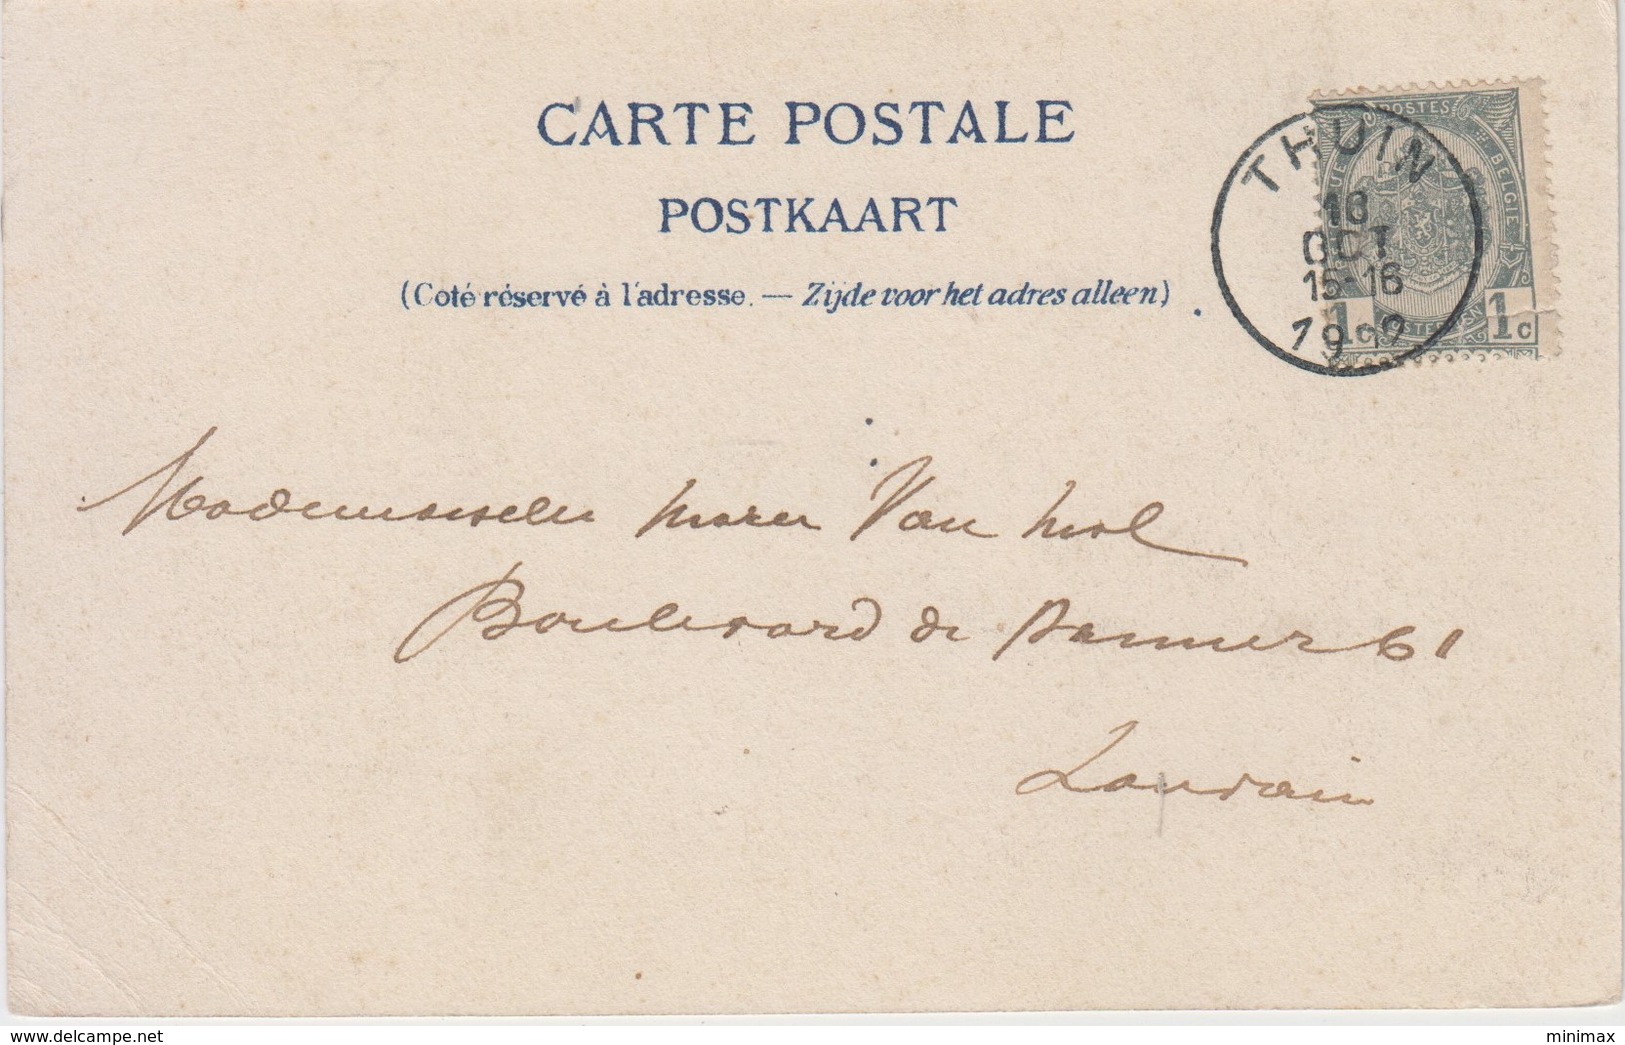 CARTE POSTALE
POSTKAART
(Coté réservé à l'adresse. — Zijde voor het adres alleen)
THUIN
18
OCT
15-16
POSTES
BELGIE
1c 1c
Mademoiselle Van Mol
Boulevard de Namur 61
Louvain
www.delcampe.net
minimax